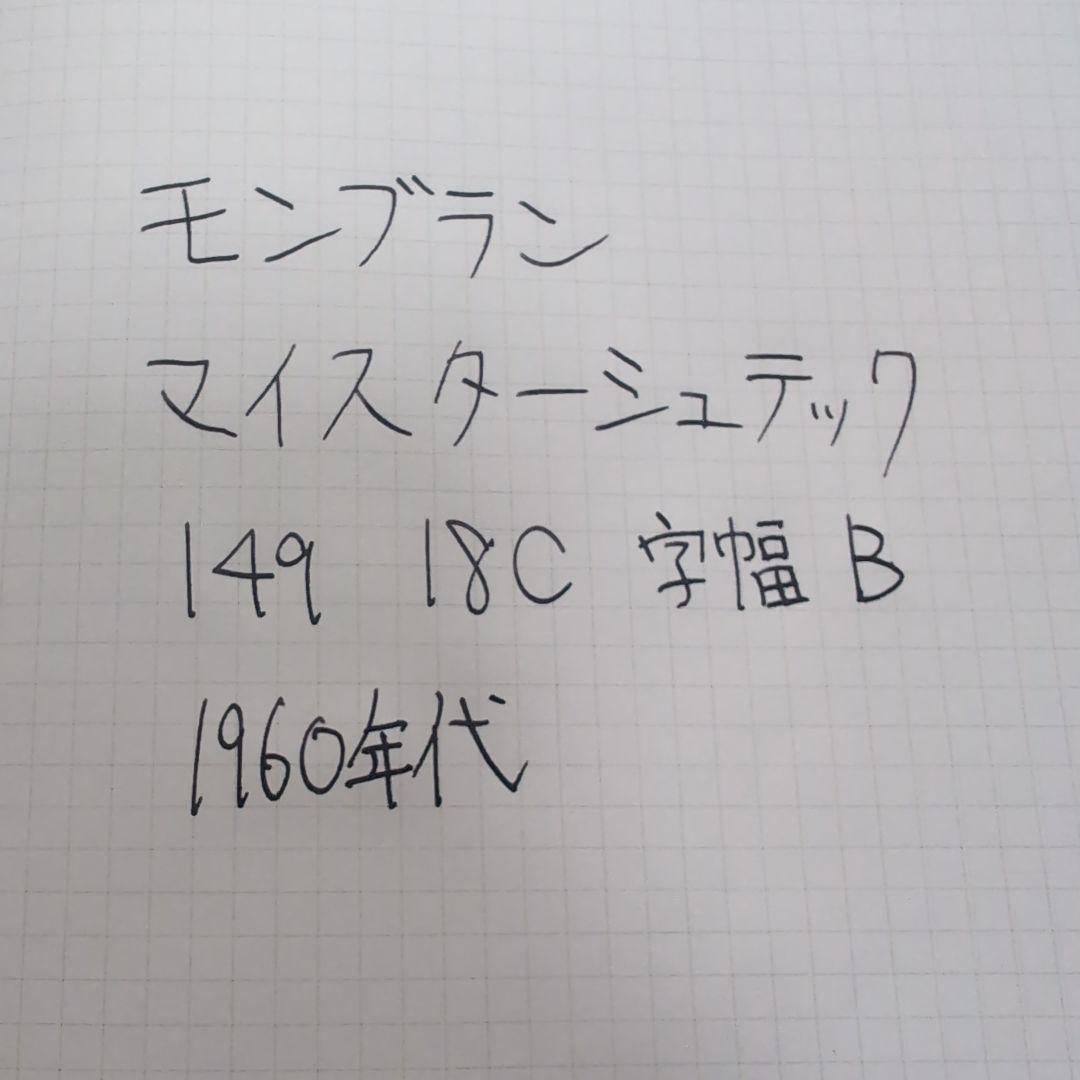 モンブラン
マイスターシュテック
149 18C 字幅 B
1960年代